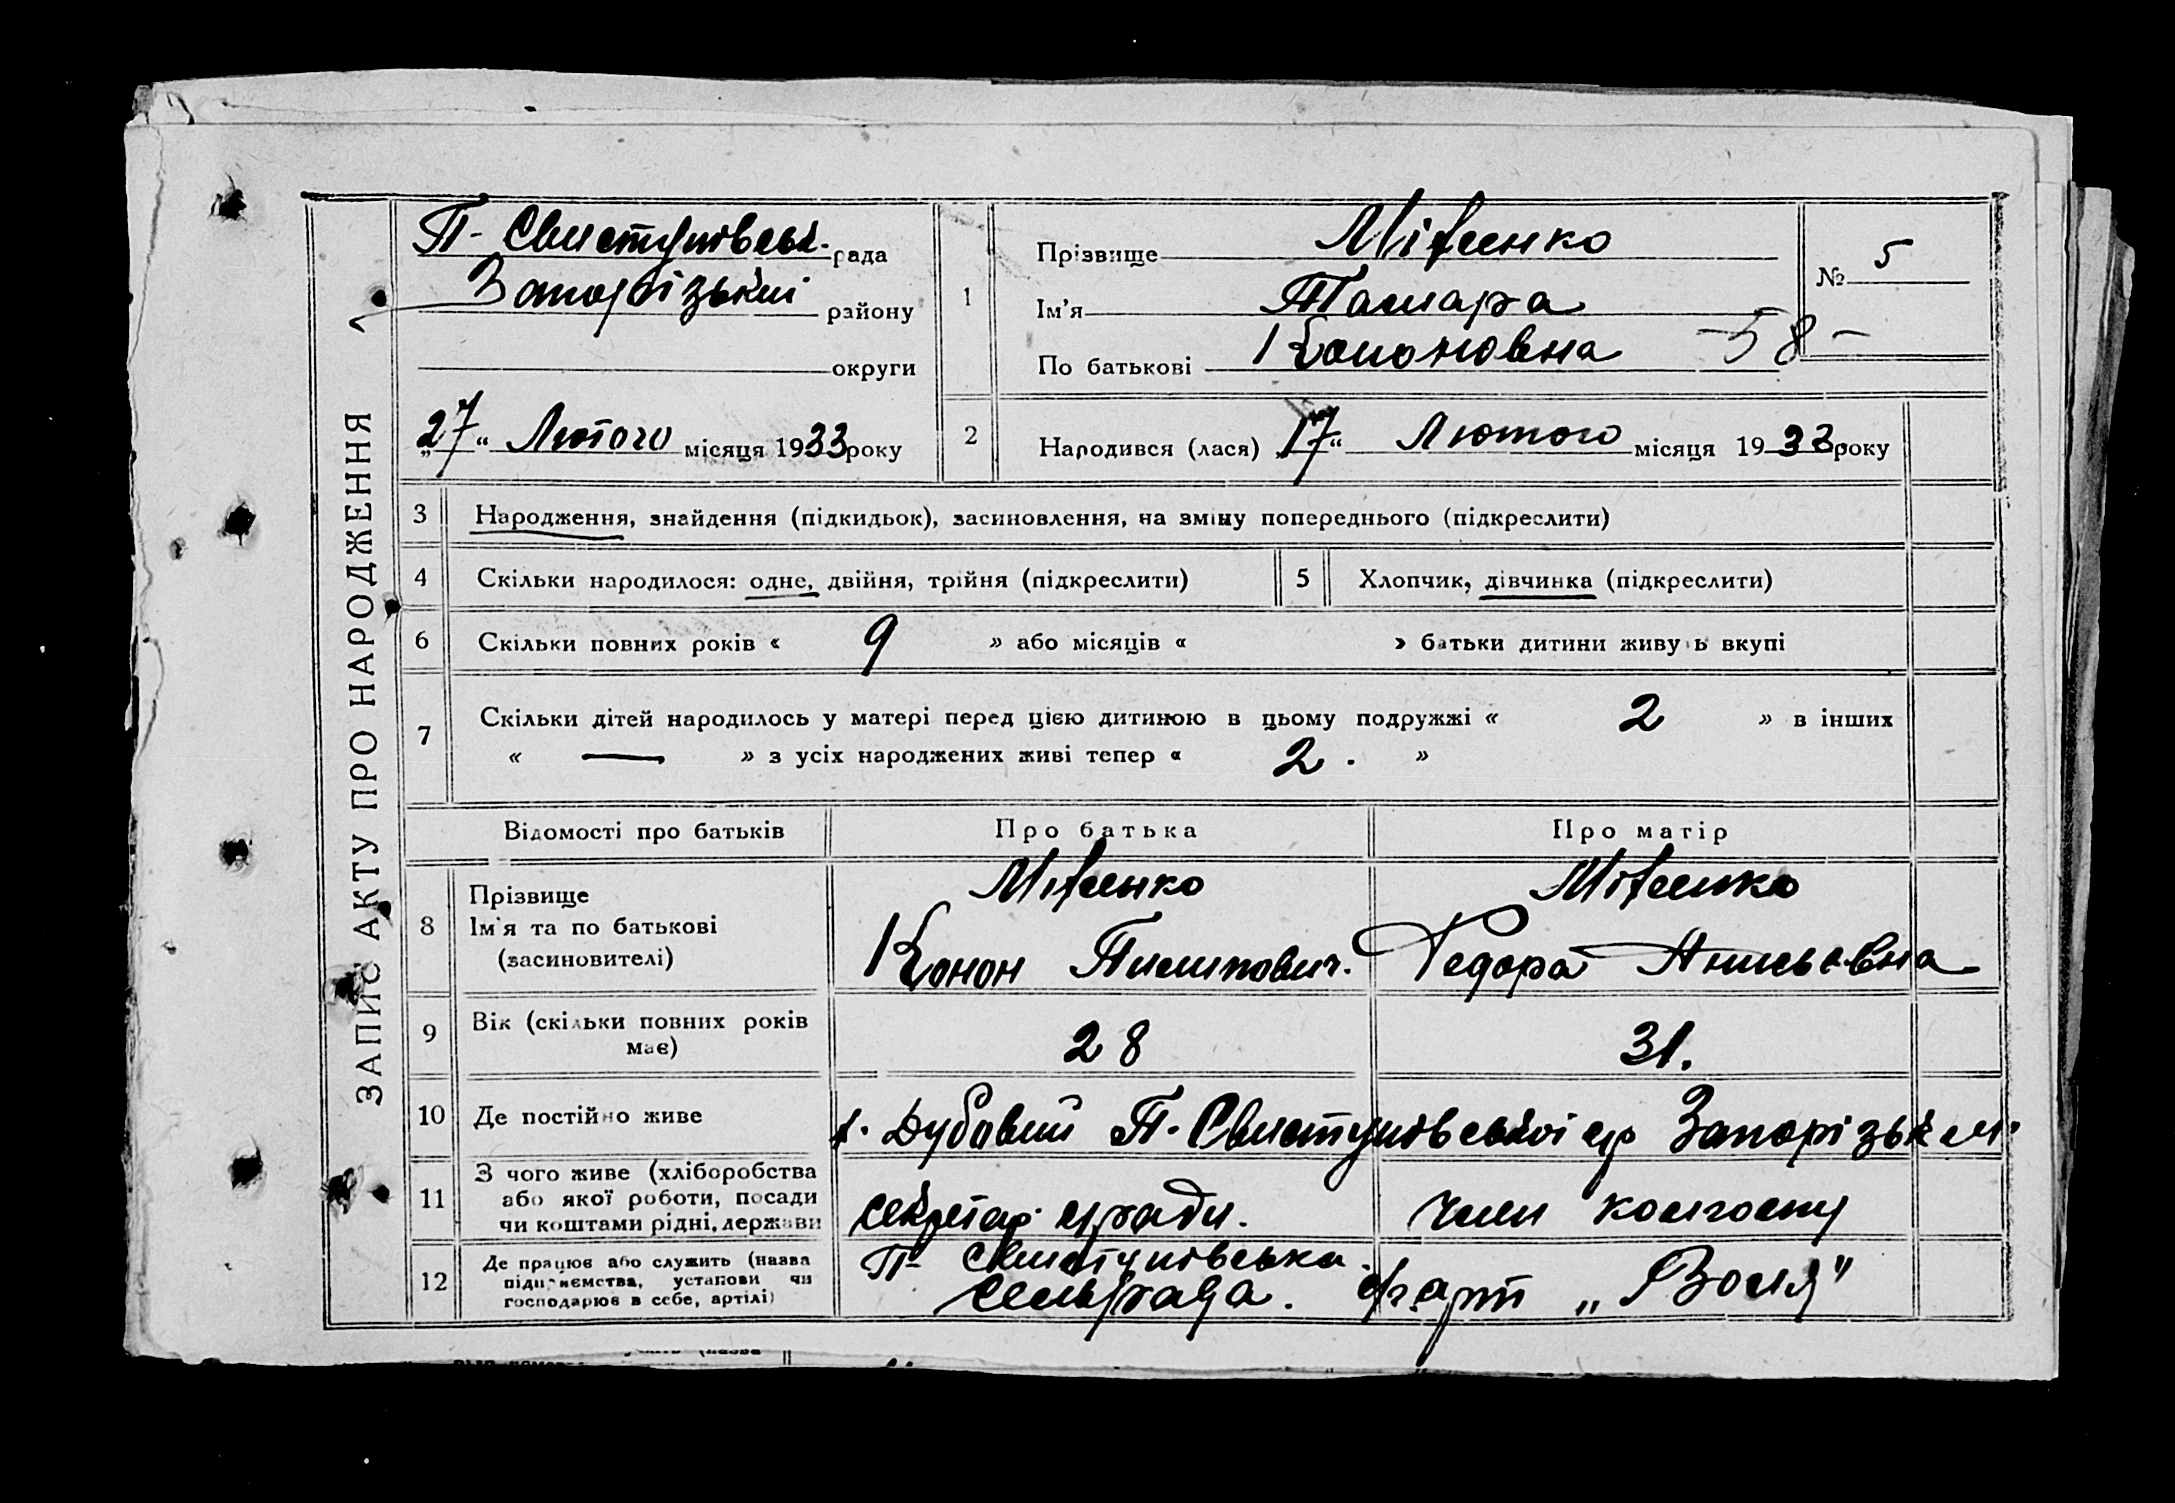 ЗАПИС АКТУ ПРО НАРОДЖЕННЯ
П-Свистунівськ. рада
Запорізький району
округи
„27“ Лютого місяця 1933 року
1
Прізвище
Ім'я Тамара
По батькові Кононовна
№ 5
58
2 Народився (лася) „17“ Лютого місяця 1933 року
3 Народження, знайдення (підкидьок), засиновлення, на зміну попереднього (підкреслити)
4 Скільки народилося: одне, двійня, трійня (підкреслити) 5 Хлопчик, дівчинка (підкреслити)
6 Скільки повних років « 9 » або місяців « » батьки дитини живуть вкупі
7 Скільки дітей народилось у матері перед цією дитиною в цьому подружжі « 2 » в інших
« — » з усіх народжених живі тепер « 2. »
Відомості про батьків Про батька Про матір
8 Прізвище
Ім'я та по батькові
(засиновителі)
Конон Пилипович. Федора
9 Вік (скільки повних років
має) 28 31.
10 Де постійно живе х. Дубовий П-Свистунівської с/р Запорізьк
11 З чого живе (хліборобства
або якої роботи, посади
чи коштами рідні, держави
секретар с/ради. член колгоспу
12 Де працює або служить (назва
підприємства, установи чи
господарює в себе, артілі)
П-Свистунівська
сельрада. с/г арт „Воля“